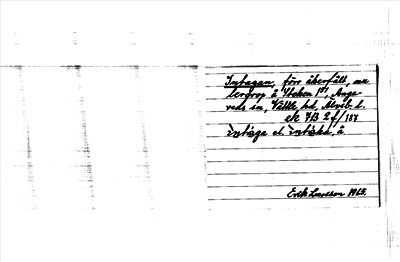 Intagan, förr åkerfält, nu
lergrop å Stocken 1⁴, Ange
reds sn, Vättle hd, Älvsb. l.
ek 7B 2 f/187
intåga el. intåkå, å
Erik Larsson 1965.